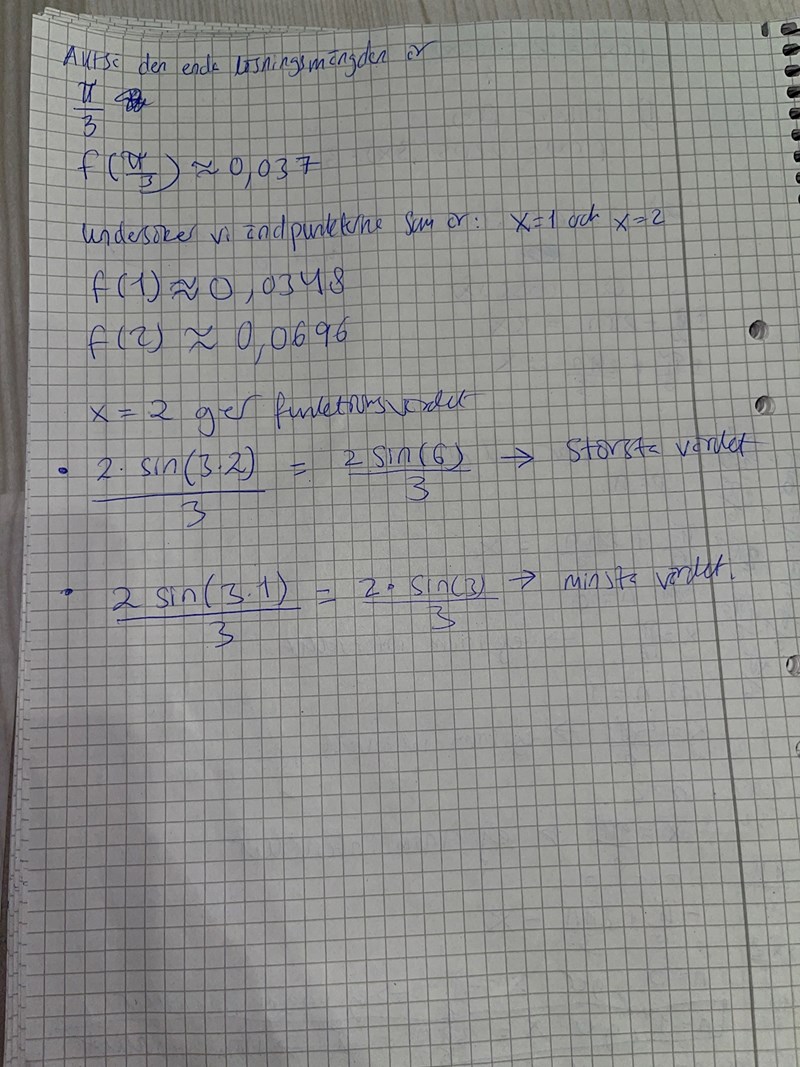 Alltså den enda lösningsmängden är
π/3
f(π/3) ≈ 0,037
undersöker vi ändpunkterna som är: x=1 och x=2
f(1) ≈ 0,0348
f(2) ≈ 0,0696
x = 2 ger funktionsvärdet
• 2·sin(3·2)/3 = 2 sin(6)/3 → största värdet
• 2 sin(3·1)/3 = 2·sin(3)/3 → minsta värdet.